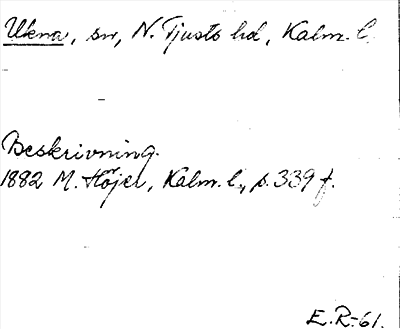 Ukna, sn, N. Tjusts hd, Kalm. l.
Beskrivning.
1882 M. Höjer, Kalm. l., s. 339 f.
E. R-61.